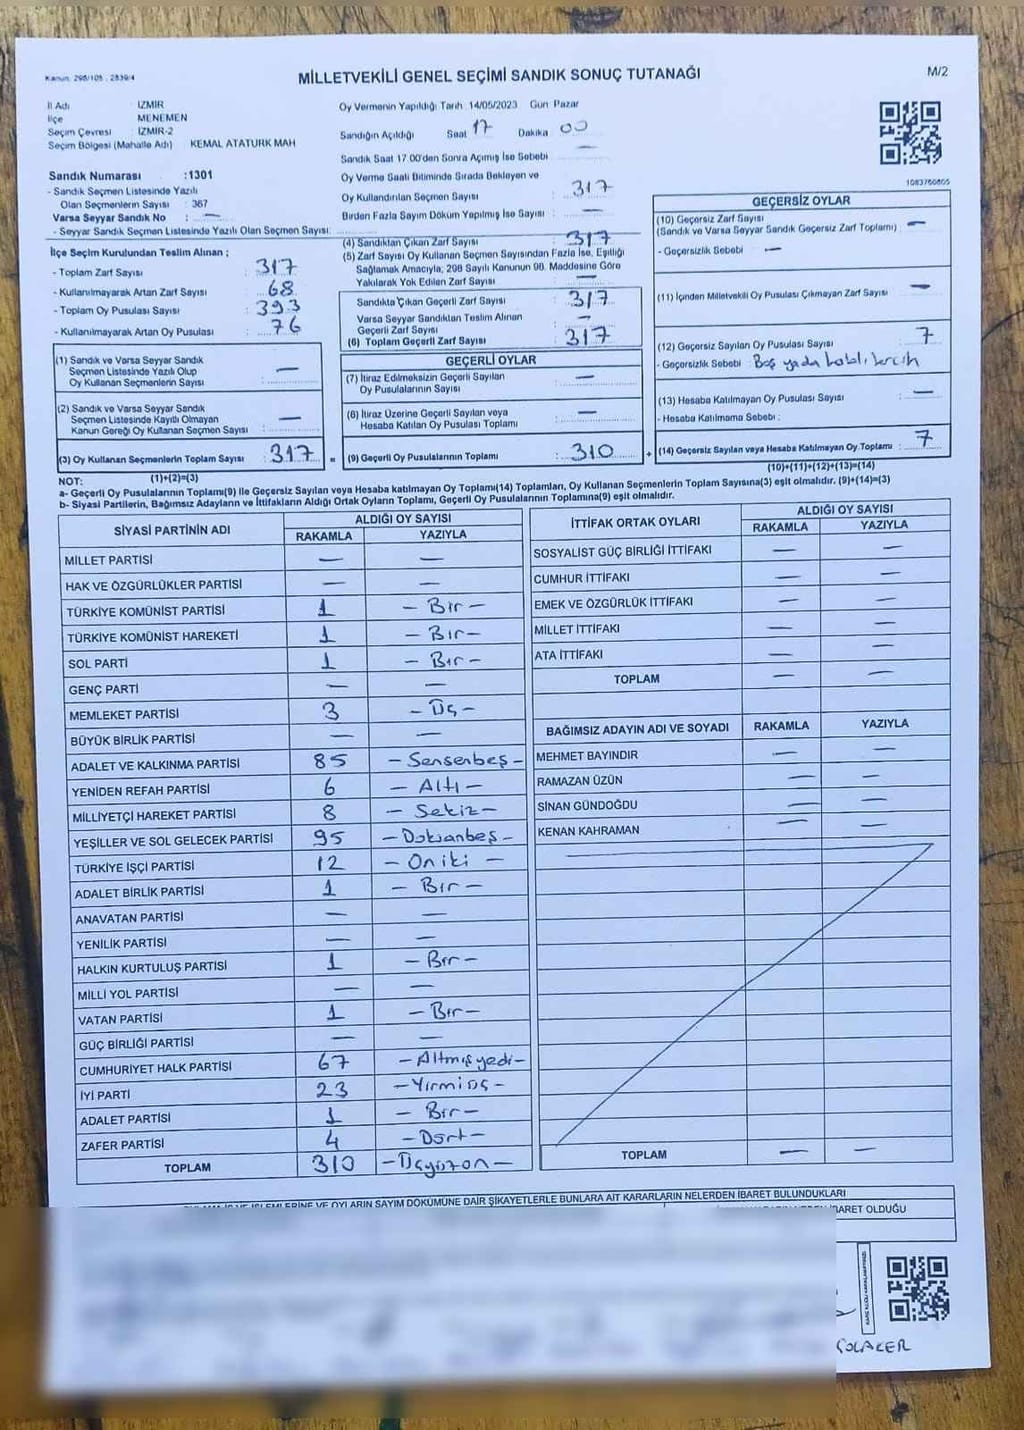 Kanun: 298/105 , 2839/4
MİLLETVEKİLİ GENEL SEÇİMİ SANDIK SONUÇ TUTANAĞI
M/2
İl Adı İZMİR
İlçe MENEMEN
Seçim Çevresi : İZMİR-2
Seçim Bölgesi (Mahalle Adı) KEMAL ATATÜRK MAH
Sandık Numarası :1301
- Sandık Seçmen Listesinde Yazılı
Olan Seçmenlerin Sayısı : 367
Varsa Seyyar Sandık No : —
- Seyyar Sandık Seçmen Listesinde Yazılı Olan Seçmen Sayısı:
Oy Vermenin Yapıldığı Tarih 14/05/2023 Gün Pazar
Sandığın Açıldığı Saat 17 Dakika 00
Sandık Saat 17.00'den Sonra Açımış İse Sebebi —
Oy Verme Saati Bitiminde Sırada Bekleyen ve
Oy Kullandırılan Seçmen Sayısı 317
Birden Fazla Sayım Döküm Yapılmış İse Sayısı —
1083760805
İlçe Seçim Kurulundan Teslim Alınan ;
- Toplam Zarf Sayısı : 317
- Kullanılmayarak Artan Zarf Sayısı : 68
- Toplam Oy Pusulası Sayısı : 393
- Kullanılmayarak Artan Oy Pusulası : 76
(1) Sandık ve Varsa Seyyar Sandık
Seçmen Listesinde Yazılı Olup
Oy Kullanan Seçmenlerin Sayısı : —
(2) Sandık ve Varsa Seyyar Sandık
Seçmen Listesinde Kayıtlı Olmayan
Kanun Gereği Oy Kullanan Seçmen Sayısı : —
(3) Oy Kullanan Seçmenlerin Toplam Sayısı : 317 =
(1)+(2)=(3)
(4) Sandıktan Çıkan Zarf Sayısı 317
(5) Zarf Sayısı Oy Kullanan Seçmen Sayısından Fazla İse, Eşitliği
Sağlamak Amacıyla; 298 Sayılı Kanunun 98. Maddesine Göre
Yakılarak Yok Edilen Zarf Sayısı —
Sandıkta Çıkan Geçerli Zarf Sayısı : 317
Varsa Seyyar Sandıktan Teslim Alınan
Geçerli Zarf Sayısı : —
(6) Toplam Geçerli Zarf Sayısı : 317
GEÇERLİ OYLAR
(7) İtiraz Edilmeksizin Geçerli Sayılan
Oy Pusulalarının Sayısı : —
(8) İtiraz Üzerine Geçerli Sayılan veya
Hesaba Katılan Oy Pusulası Toplamı : —
(9) Geçerli Oy Pusulalarının Toplamı : 310 +
GEÇERSİZ OYLAR
(10) Geçersiz Zarf Sayısı
(Sandık ve Varsa Seyyar Sandık Geçersiz Zarf Toplamı) : —
- Geçersizlik Sebebi : —
(11) İçinden Milletvekili Oy Pusulası Çıkmayan Zarf Sayısı : —
(12) Geçersiz Sayılan Oy Pusulası Sayısı 7
- Geçersizlik Sebebi : Boş yada hatalı tercih
(13) Hesaba Katılmayan Oy Pusulası Sayısı : —
- Hesaba Katılmama Sebebi :
(14) Geçersiz Sayılan veya Hesaba Katılmayan Oy Toplamı : 7
(10)+(11)+(12)+(13)=(14)
NOT:
a- Geçerli Oy Pusulalarının Toplamı(9) ile Geçersiz Sayılan veya Hesaba katılmayan Oy Toplamı(14) Toplamları, Oy Kullanan Seçmenlerin Toplam Sayısına(3) eşit olmalıdır. (9)+(14)=(3)
b- Siyasi Partilerin, Bağımsız Adayların ve İttifakların Aldığı Ortak Oyların Toplamı, Geçerli Oy Pusulalarının Toplamına(9) eşit olmalıdır.
SİYASİ PARTİNİN ADI ALDIĞI OY SAYISI
RAKAMLA YAZIYLA
MİLLET PARTİSİ — —
HAK VE ÖZGÜRLÜKLER PARTİSİ — —
TÜRKİYE KOMÜNİST PARTİSİ 1 – Bir –
TÜRKİYE KOMÜNİST HAREKETİ 1 – Bir –
SOL PARTİ 1 – Bir –
GENÇ PARTİ — —
MEMLEKET PARTİSİ 3 – Üç –
BÜYÜK BİRLİK PARTİSİ — —
ADALET VE KALKINMA PARTİSİ 85 – Senserbeş –
YENİDEN REFAH PARTİSİ 6 – Altı –
MİLLİYETÇİ HAREKET PARTİSİ 8 – Sekiz –
YEŞİLLER VE SOL GELECEK PARTİSİ 95 – Doksanbeş –
TÜRKİYE İŞÇİ PARTİSİ 12 – On iki –
ADALET BİRLİK PARTİSİ 1 – Bir –
ANAVATAN PARTİSİ — —
YENİLİK PARTİSİ — —
HALKIN KURTULUŞ PARTİSİ 1 – Bir –
MİLLİ YOL PARTİSİ — —
VATAN PARTİSİ 1 – Bir –
GÜÇ BİRLİĞİ PARTİSİ — —
CUMHURİYET HALK PARTİSİ 67 – Altmışyedi –
İYİ PARTİ 23 – Yirmiüç –
ADALET PARTİSİ 1 – Bir –
ZAFER PARTİSİ 4 – Dört –
TOPLAM 310 – Üçyüzon –
İTTİFAK ORTAK OYLARI ALDIĞI OY SAYISI
RAKAMLA YAZIYLA
SOSYALİST GÜÇ BİRLİĞİ İTTİFAKI — —
CUMHUR İTTİFAKI — —
EMEK VE ÖZGÜRLÜK İTTİFAKI — —
MİLLET İTTİFAKI — —
ATA İTTİFAKI — —
TOPLAM — —
BAĞIMSIZ ADAYIN ADI VE SOYADI RAKAMLA YAZIYLA
MEHMET BAYINDIR — —
RAMAZAN ÜZÜN — —
SİNAN GÜNDOĞDU — —
KENAN KAHRAMAN — —
TOPLAM — —
İŞLEMLERİNE VE OYLARIN SAYIM DÖKÜMÜNE DAİR ŞİKAYETLERLE BUNLARA AİT KARARLARIN NELERDEN İBARET BULUNDUKLARI
İBARET OLDUĞU
ÇOLAKER